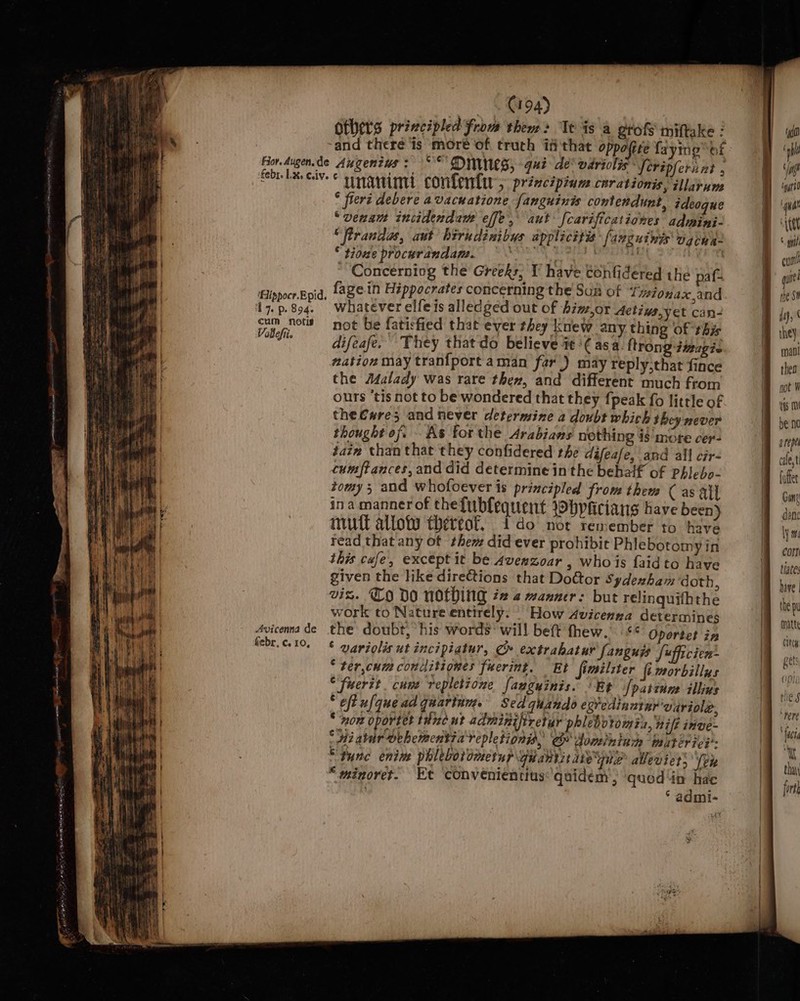 (194)
others principled from them: It is a gross mistake:
and there is more of truth in that opposite saying of
Hor. Augen. de
febr. l.x. c.iv.
Augenius: “Omnes, qui de variolis scripserunt,
‘unanimi consensu, principium curationis, illarum
‘fieri debere a vacuatione sanguinis contendunt, ideoque
‘venam incidendam esse, aut scarificationes admini-
‘strandas, aut hirudinibus applicitis sanguinis vacua-
‘tione procurandam.
Concerning the Greeks, I have considered the pas-
Hippocr. Epid.
l 7. p. 894.
cum notis
Vallesii.
sage in Hippocrates concerning the Son of Timonax, and
whatever else is alledged out of him, or Aetius, yet can-
not be satisfied that ever they knew any thing of this
disease. They that do believe it (as a strong imagi-
nation may transport a man far) may reply, that since
the Malady was rare then, and different much from
ours 'tis not to be wondered that they speak so little of
the Cure; and never determine a doubt which they never
thought of. As for the Arabians nothing is more cer-
tain than that they considered the disease, and all cir-
cumstances, and did determine in the behalf of Phlebo-
tomy; and whosoever is principled from them (as all
in a manner of the subsequent Physicians have been)
must allow thereof. I do not remember to have
read that any of them did ever prohibit Phlebotomy in
this case, except it be Avenzoar, who is said to have
given the like directions that Doctor Sydenham doth,
viz. To do nothing in a manner: but relinquish the
work to Nature entirely. How Avicenna determines
Avicenna de
febr. c. 10.
the doubt, his words will best shew. “Oportet in
‘variolis ut incipiatur, & extrahatur sanguis sufficien-
‘ter, cum conditiones fuerint. Et similiter si morbillus
‘fuerit cum repletione sanguinis. Et spatium illius
‘est usque ad quartum. Sed quando egrediuntur variolæ,
‘non oportet tunc ut administretur phlebotomia, nisi inve-
‘niatur vehementia repletionis, & dominium materiei:
‘tunc enim phlebotometur quantitate quæ alleviet, seu
‘minoret. Et convenientius quidem, quod in hac
‘admi-